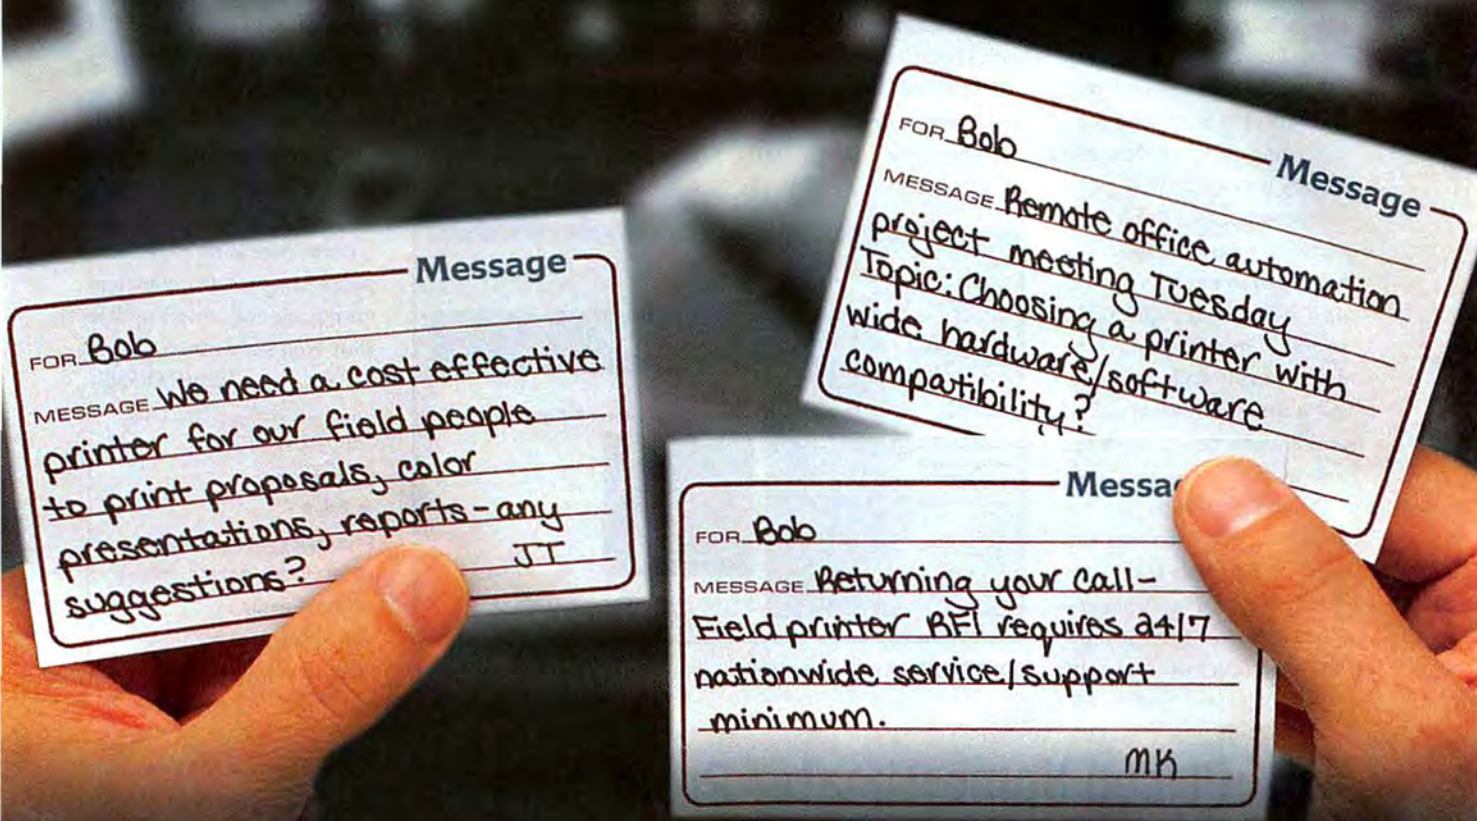 Message
FOR Bob
MESSAGE We need a cost effective
printer for our field people
to print proposals, color
presentations, reports - any
suggestions?
JT
Message
FOR Bob
MESSAGE Remote office automation
project meeting Tuesday
Topic: Choosing a printer with
wide hardware/software
compatibility?
Messa
FOR Bob
MESSAGE Returning your call-
Field printer RFI requires 24/7
nationwide service/support
minimum.
MK